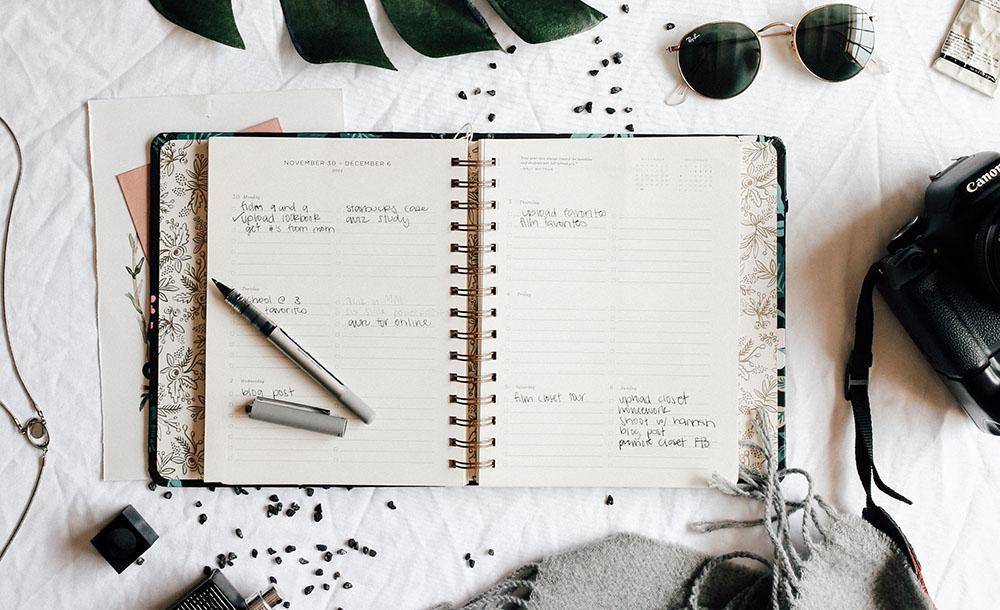 NOVEMBER 30 - DECEMBER 6
30 Monday
film q and a
starbucks case
upload lookbook
quiz study
get #'s from mom
Tuesday
school @ 3
favorites
quiz for online
2 Wednesday
blog post
- WALT WHITMAN
3 Thursday
upload favorites
film favorites
4 Friday
5 Saturday
film closet tour
6 Sunday
upload closet
homework
shoot w/ hannah
blog post
promote closet FB
Ray-Ban
Canon